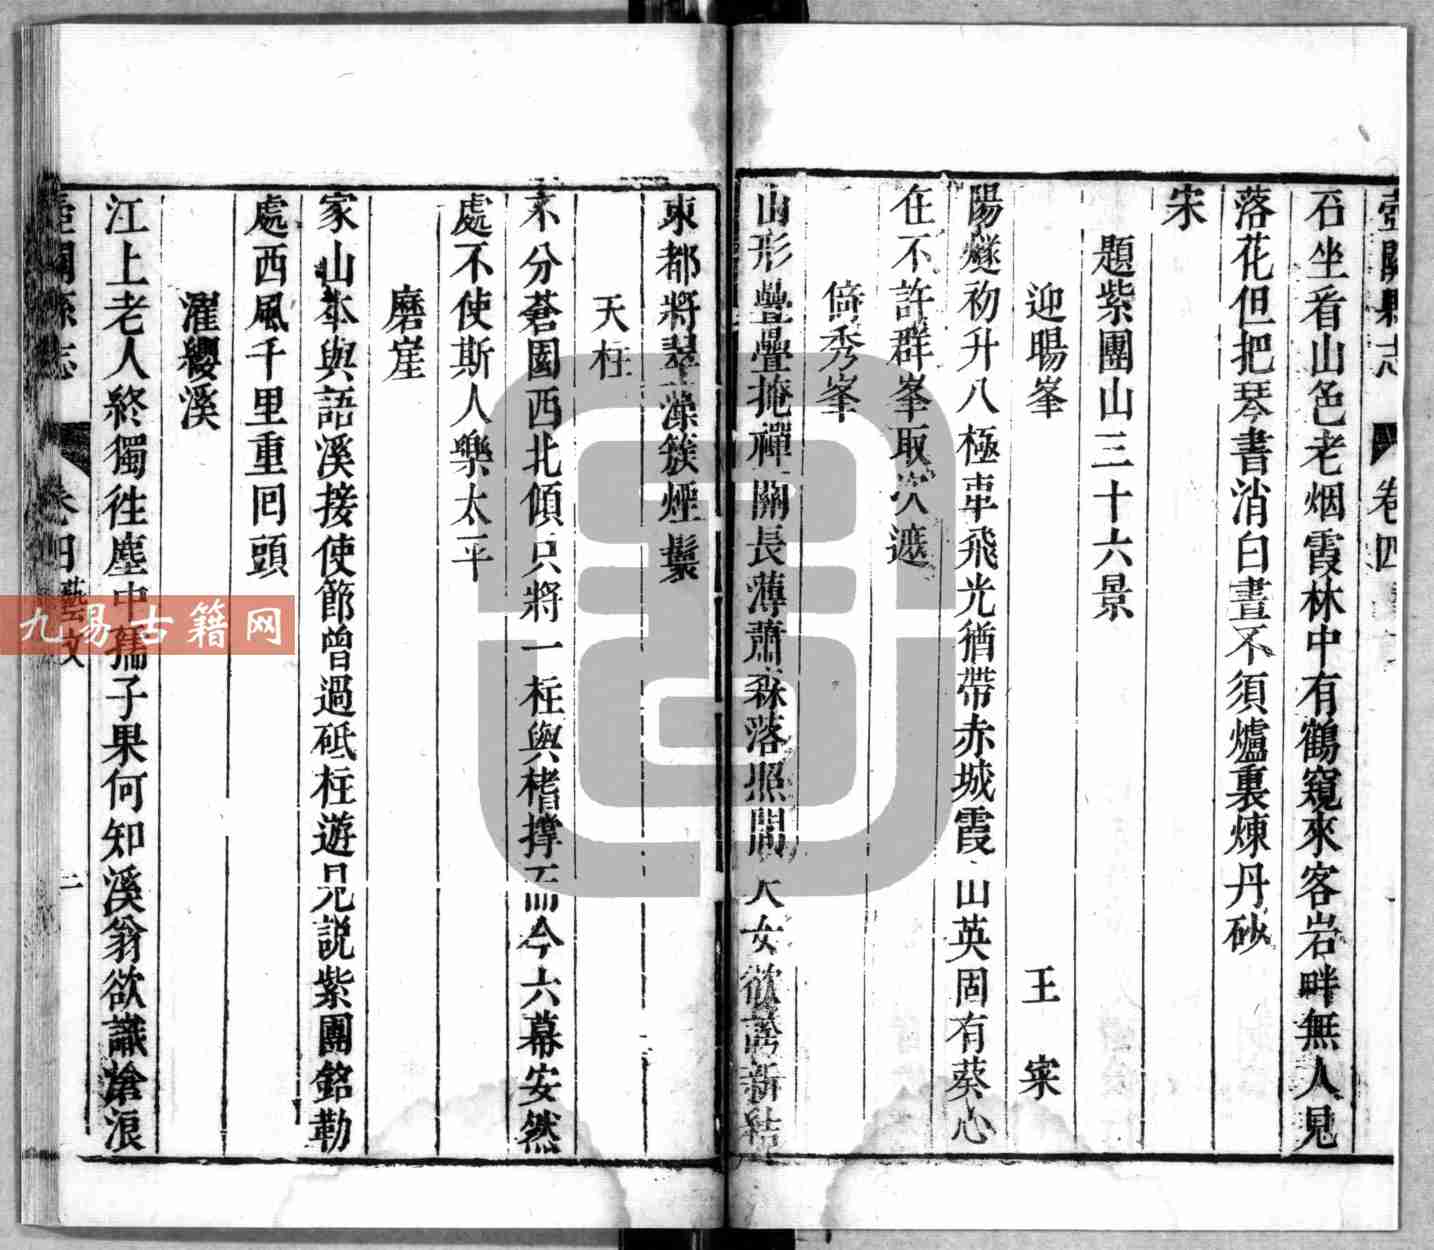 壺關縣志 卷四
石坐看山色老烟霞林中有鶴窺來客岩畔無人見
落花但把琴書消白晝不須爐裏煉丹砂
宋
題紫團山三十六景
迎暘峯 王寀
陽燧初升八極車飛光猶帶赤城霞山英固有葵心
在不許群峯取次遮
倚秀峯
山形疊疊掩禪關長薄蕭森落照間天女欲誇新結
束都將翠藻簇煙鬟
天柱
不分蒼圓西北傾只將一柱與楮撑而今六幕安然
處不使斯人樂太平
磨崖
家山本與語溪接使節曾過砥柱遊見説紫團銘勒
處西風千里重回頭
濯纓溪
江上老人終獨徃塵中孺子果何知溪翁欲識滄浪
壺關縣志 卷四藝文 二
九易古籍网